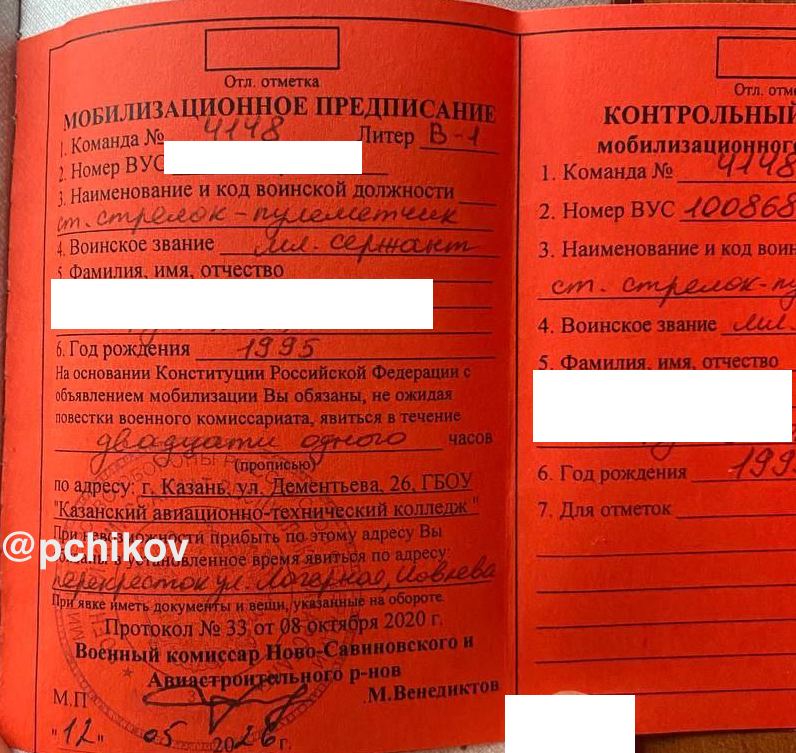 Отл. отметка
МОБИЛИЗАЦИОННОЕ ПРЕДПИСАНИЕ
1. Команда № 4148 Литер В-1
2. Номер ВУС
3. Наименование и код воинской должности
ст. стрелок-пулеметчик
4. Воинское звание мл. сержант
5. Фамилия, имя, отчество
6. Год рождения 1995
На основании Конституции Российской Федерации с
объявлением мобилизации Вы обязаны, не ожидая
повестки военного комиссариата, явиться в течение
двадцати одного часов
(прописью)
по адресу: г. Казань, ул. Дементьева, 26, ГБОУ
"Казанский авиационно-технический колледж"
При невозможности прибыть по этому адресу Вы
в установленное время явиться по адресу:
перекресток ул. Лагерная,
При явке иметь документы и вещи, указанные на обороте.
Протокол № 33 от 08 октября 2020 г.
Военный комиссар Ново-Савиновского и
Авиастроительного р-нов
М.П М.Венедиктов
"12" 05 2026 г.
@pchikov
Отл. отм
КОНТРОЛЬНЫЙ
мобилизационного
1. Команда № 4148
2. Номер ВУС 100868
3. Наименование и код воин
ст. стрелок-пу
4. Воинское звание мл.
5. Фамилия, имя, отчество
6. Год рождения 199
7. Для отметок